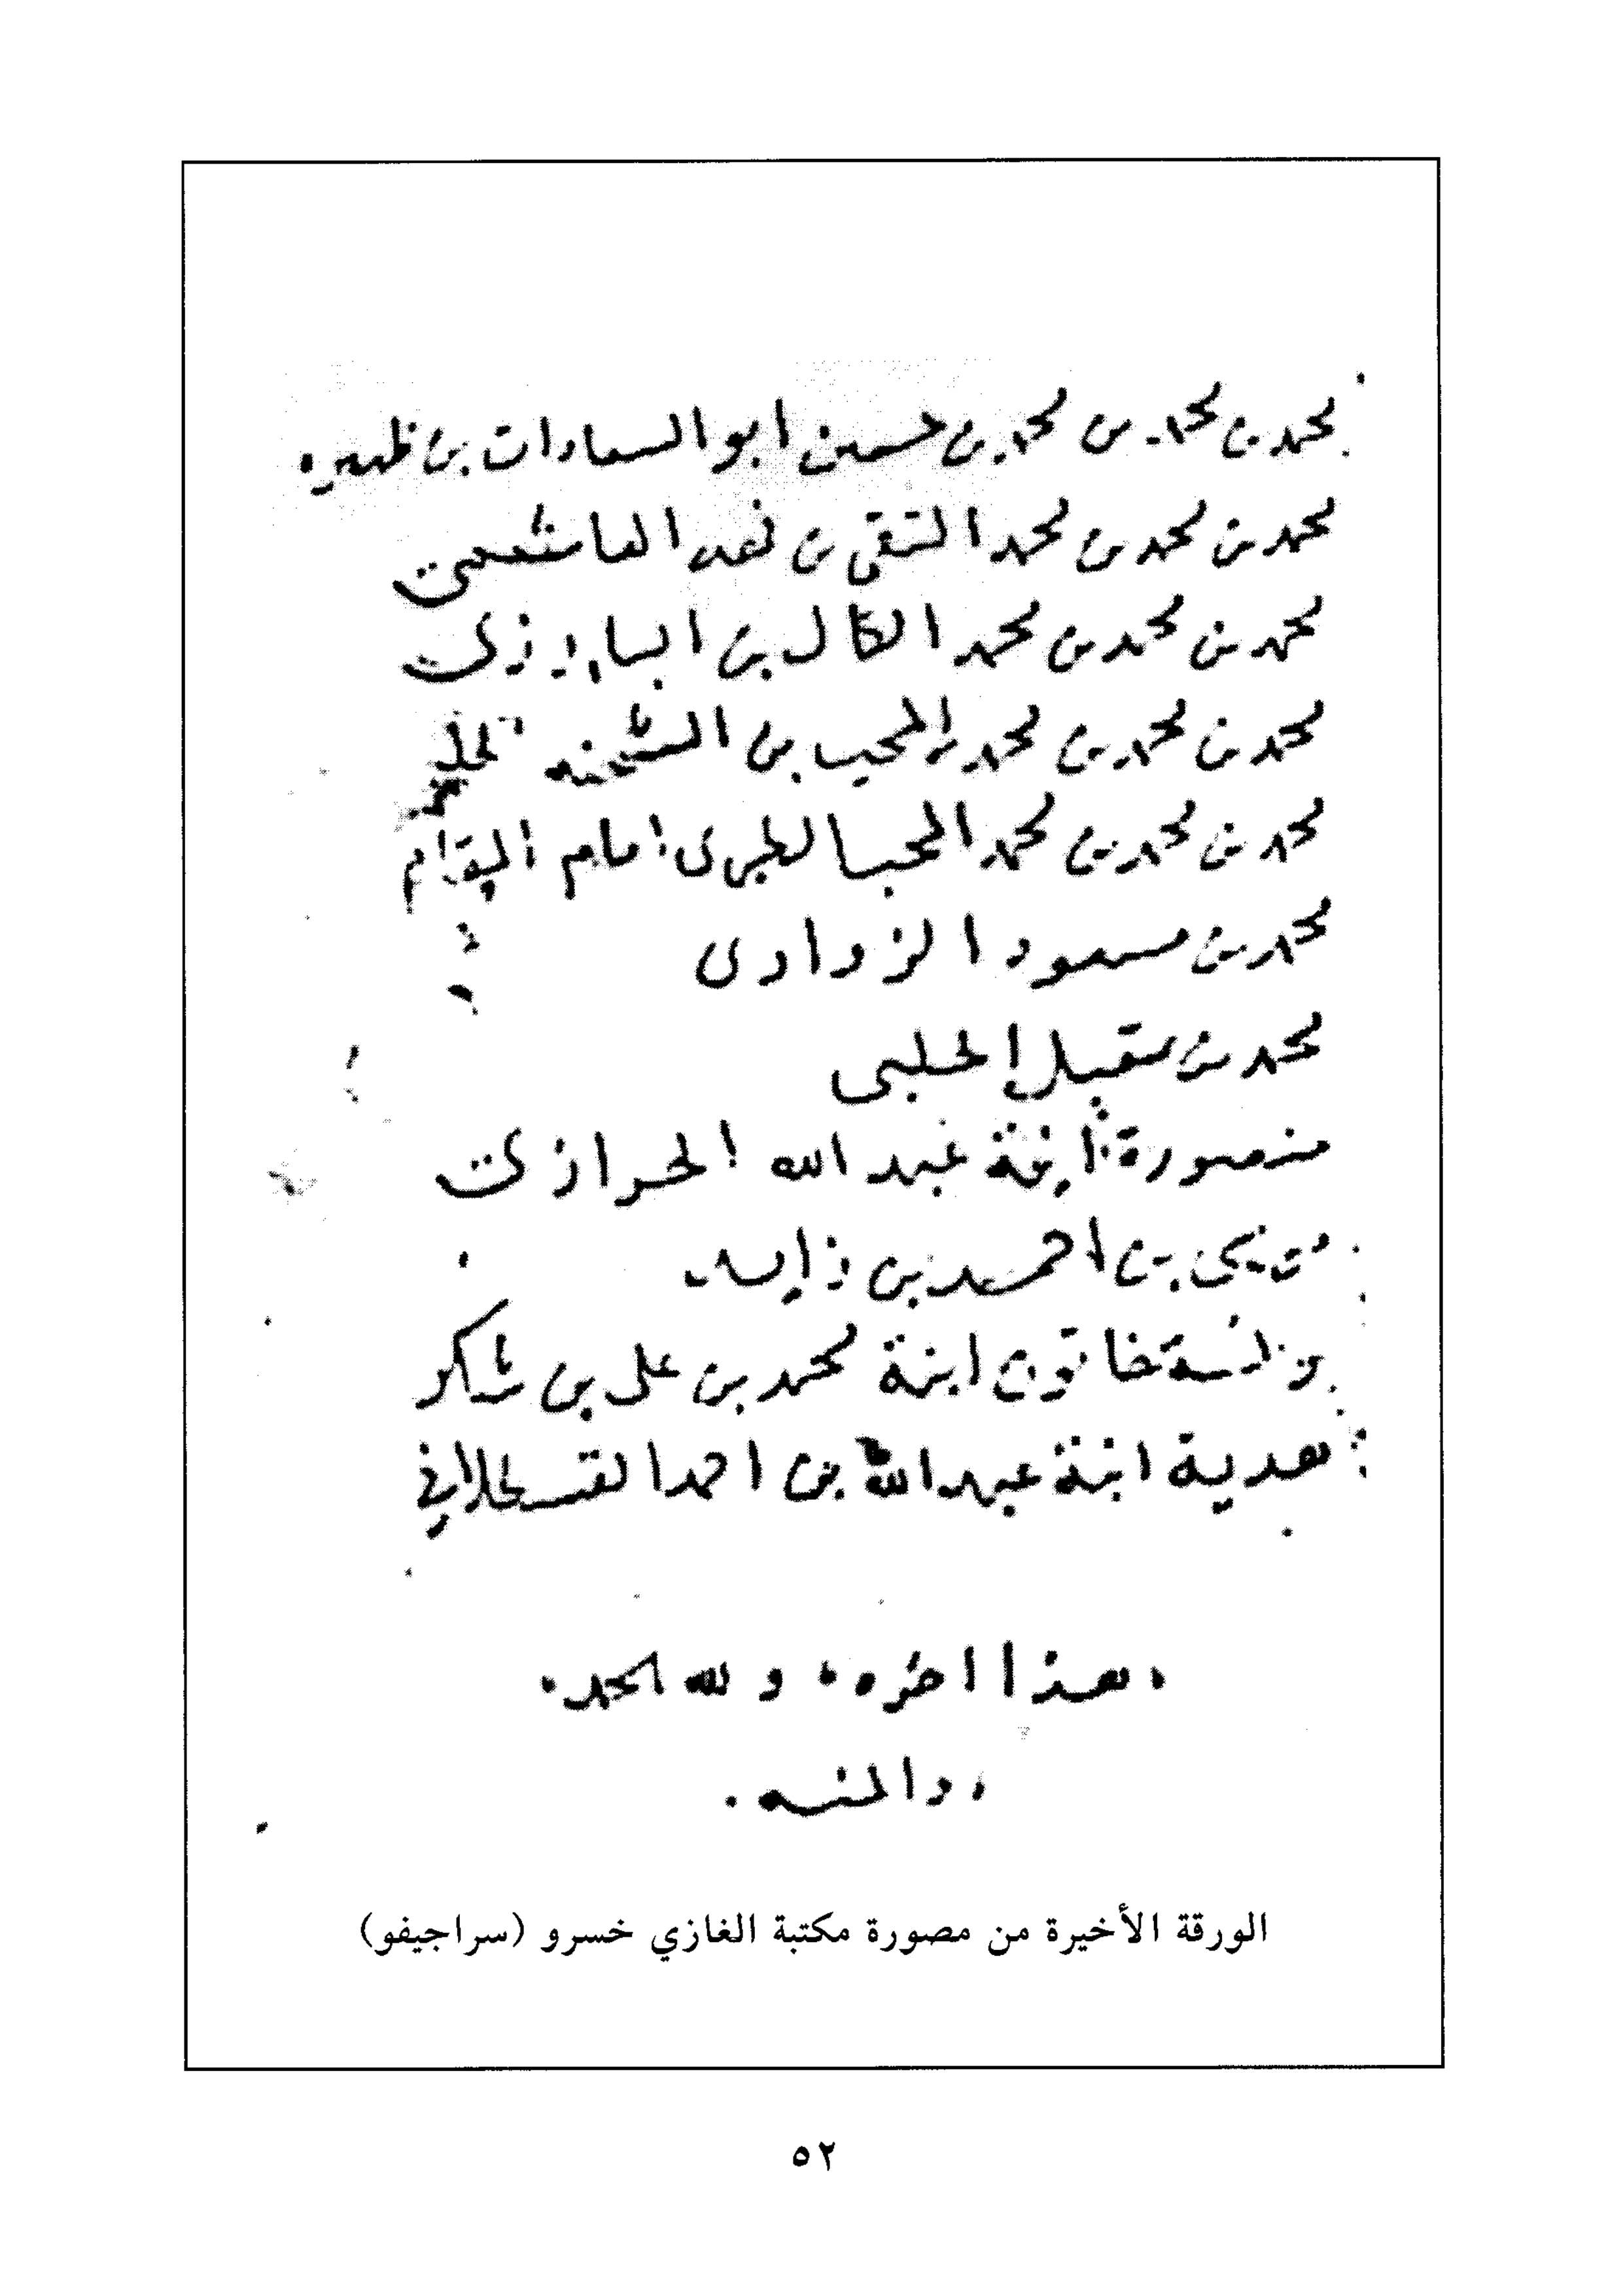 محمد بن محمد بن محمد بن حسين ابو السعادات بن ظهيره
محمد بن محمد بن محمد التقي بن فهد الهاشمي
محمد بن محمد بن محمد الكمال بن البارزي
محمد بن محمد بن محمد المحب بن الشحنه
محمد بن محمد بن محمد المحب الطبرى امام المقام
محمد بن مسعود الزواوى
محمد بن مقبل الحلبى
منصورة ابنة عبد الله الحرازي
بن احمد بن
خاتون ابنة محمد بن على بن شاكر
هدية ابنة عبد الله بن احمد القسطلاني
هذا اخره ولله الحمد
والمنه
الورقة الأخيرة من مصورة مكتبة الغازي خسرو (سراجيفو)
٥٢